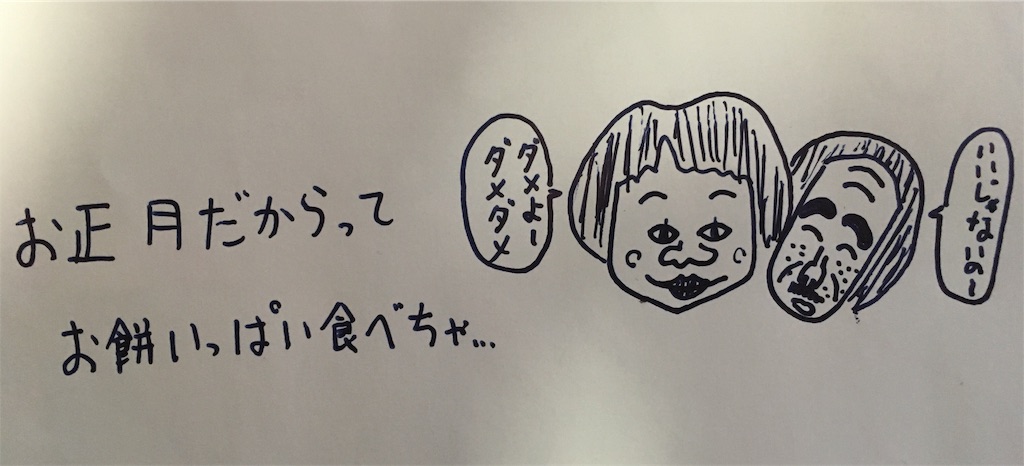 お正月だからって
お餅いっぱい食べちゃ...
ダメよー
ダメダメ
いいじゃないの~